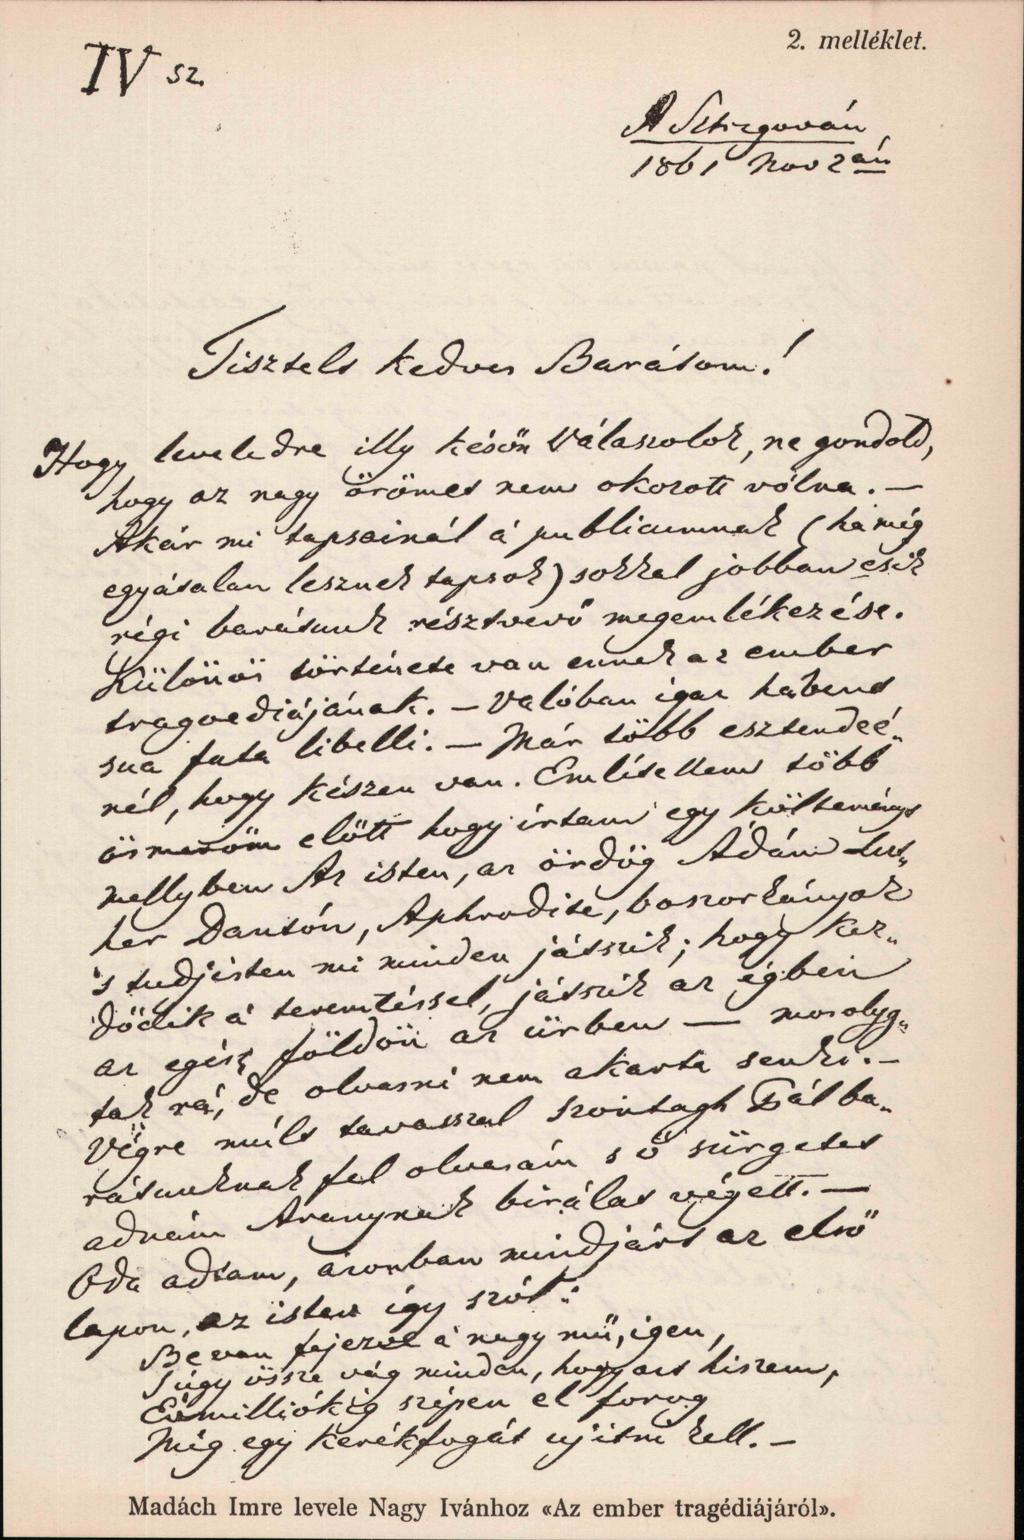 2. melléklet.
IV sz.
A Sztregován
1861 Nov 2án
Tisztelt kedves Barátom!
Hogy leveledre illy későn válaszolok, ne gondold,
hogy az nagy örömet nem okozott vólna. —
Akár mi tapsainál á publicumnak (ha még
egyátalan lesznek tapsok) sokkal jobban esik
régi barátunk résztvevő megemlékezése.
Különös története van ennek az ember
tragoediájának. — Valóban igaz habent
sua fata libelli. — Már több esztendeé„
nél, hogy készen van. Emlitettem több
ösmerőm előtt hogy írtam egy költeményt
mellyben Az isten, az ördög Ádám Lut„
her Dantón, Aphrodite, boszorkányok
's tudjisten mi minden játszik; hogy kez„
dődik á teremtéssel, játszik az égben
az egész földön az ürben — mosolyg„
tak rá, de olvasni nem akarta senki. —
Végre múlt tavasszal Szontagh Pál ba„
rátunknak fel olvasám s ő sürgetet
adnám Aranynak birálat végett. —
Oda adtam, azonban mindjárt az első
lapon, az isten így szól:
Be van fejezve á nagy mű, igen,
S úgy össze vág minden, hogy azt hiszem,
Évmilliókig szépen el forog
Mig egy kerékfogát ujitni kell. —
Madách Imre levele Nagy Ivánhoz «Az ember tragédiájáról».